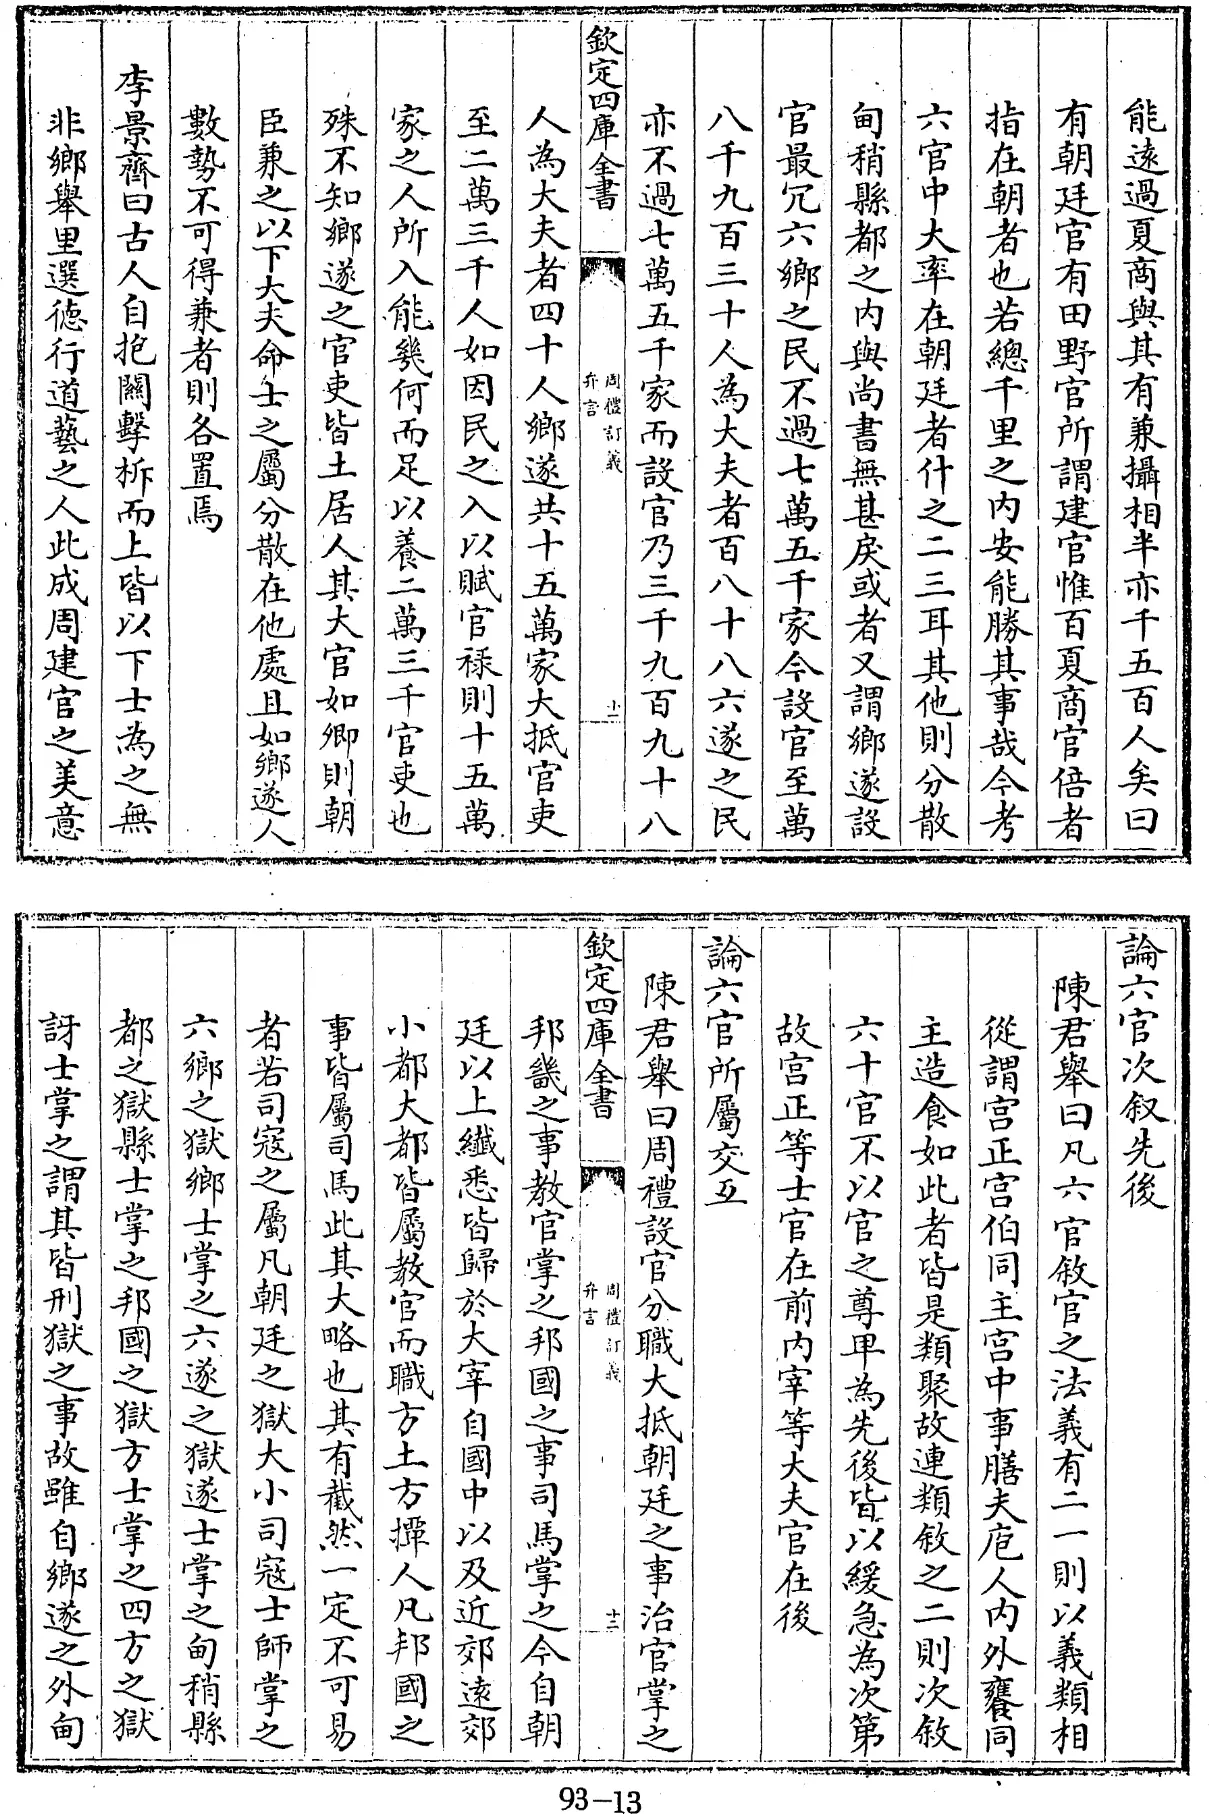 能遠過夏商與其有兼攝相半亦千五百人矣曰
有朝廷官有田野官所謂建官惟百夏商官倍者
指在朝者也若總千里之内安能勝其事哉今考
六官中大率在朝廷者什之二三耳其他則分散
甸稍縣都之内與尚書無甚戾或者又謂鄉遂設
官最冗六鄉之民不過七萬五千家今設官至萬
八千九百三十人為大夫者百八十八六遂之民
亦不過七萬五千家而設官乃三千九百九十八
欽定四庫全書
周禮訂義
弁言
十二
人為大夫者四十人鄉遂共十五萬家大抵官吏
至二萬三千人如因民之入以賦官禄則十五萬
家之人所入能幾何而足以養二萬三千官吏也
殊不知鄉遂之官吏皆土居人其大官如卿則朝
臣兼之以下大夫命士之屬分散在他處且如鄉遂人
數勢不可得兼者則各置焉
李景齊曰古人自抱關擊柝而上皆以下士為之無
非鄉舉里選德行道藝之人此成周建官之美意
論六官次叙先後
陳君舉曰凡六官敘官之法義有二一則以義類相
從謂宫正宫伯同主宫中事膳夫庖人内外饔同
主造食如此者皆是類聚故連類敘之二則次敘
六十官不以官之尊卑為先後皆以緩急為次第
故宫正等士官在前内宰等大夫官在後
論六官所屬交互
陳君舉曰周禮設官分職大抵朝廷之事治官掌之
欽定四庫全書
周禮訂義
弁言
十三
邦畿之事教官掌之邦國之事司馬掌之今自朝
廷以上纎悉皆歸於大宰自國中以及近郊遠郊
小都大都皆屬教官而職方土方撢人凡邦國之
事皆屬司馬此其大略也其有截然一定不可易
者若司寇之屬凡朝廷之獄大小司寇士師掌之
六鄉之獄鄉士掌之六遂之獄遂士掌之甸稍縣
都之獄縣士掌之邦國之獄方士掌之四方之獄
訝士掌之謂其皆刑獄之事故雖自鄉遂之外甸
93-13